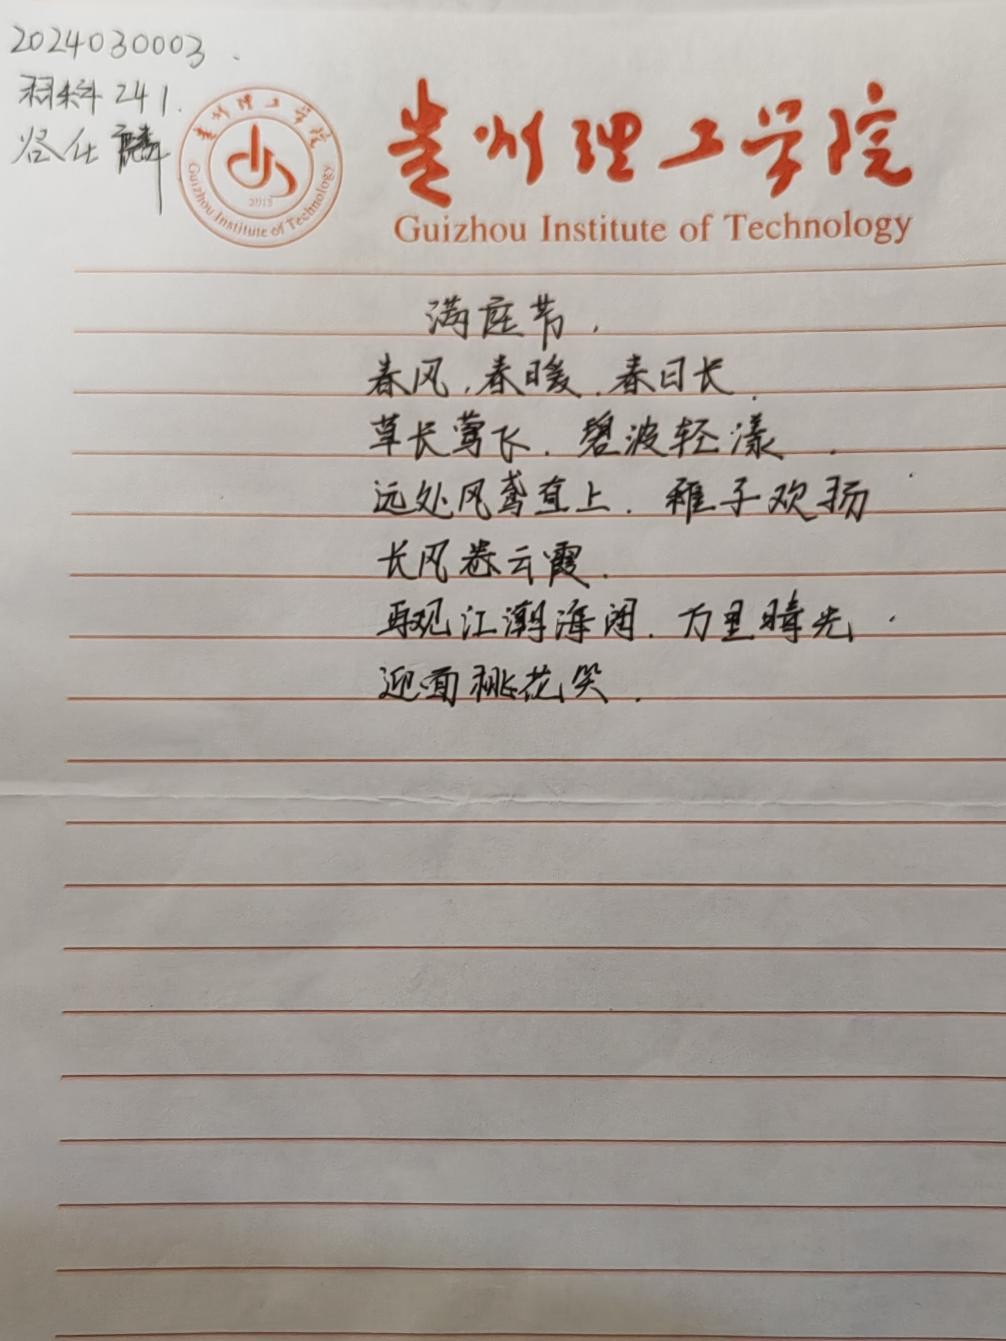 2024030003.
材料241.
仕麟
贵州理工学院
Guizhou Institute of Technology
2013
贵州理工学院
Guizhou Institute of Technology
满庭芳.
春风,春暖.春日长.
草长莺飞.碧波轻漾.
远处风鸢直上.稚子欢扬
长风卷云霞.
再观江潮海阔.万里晴光.
迎面桃花笑.